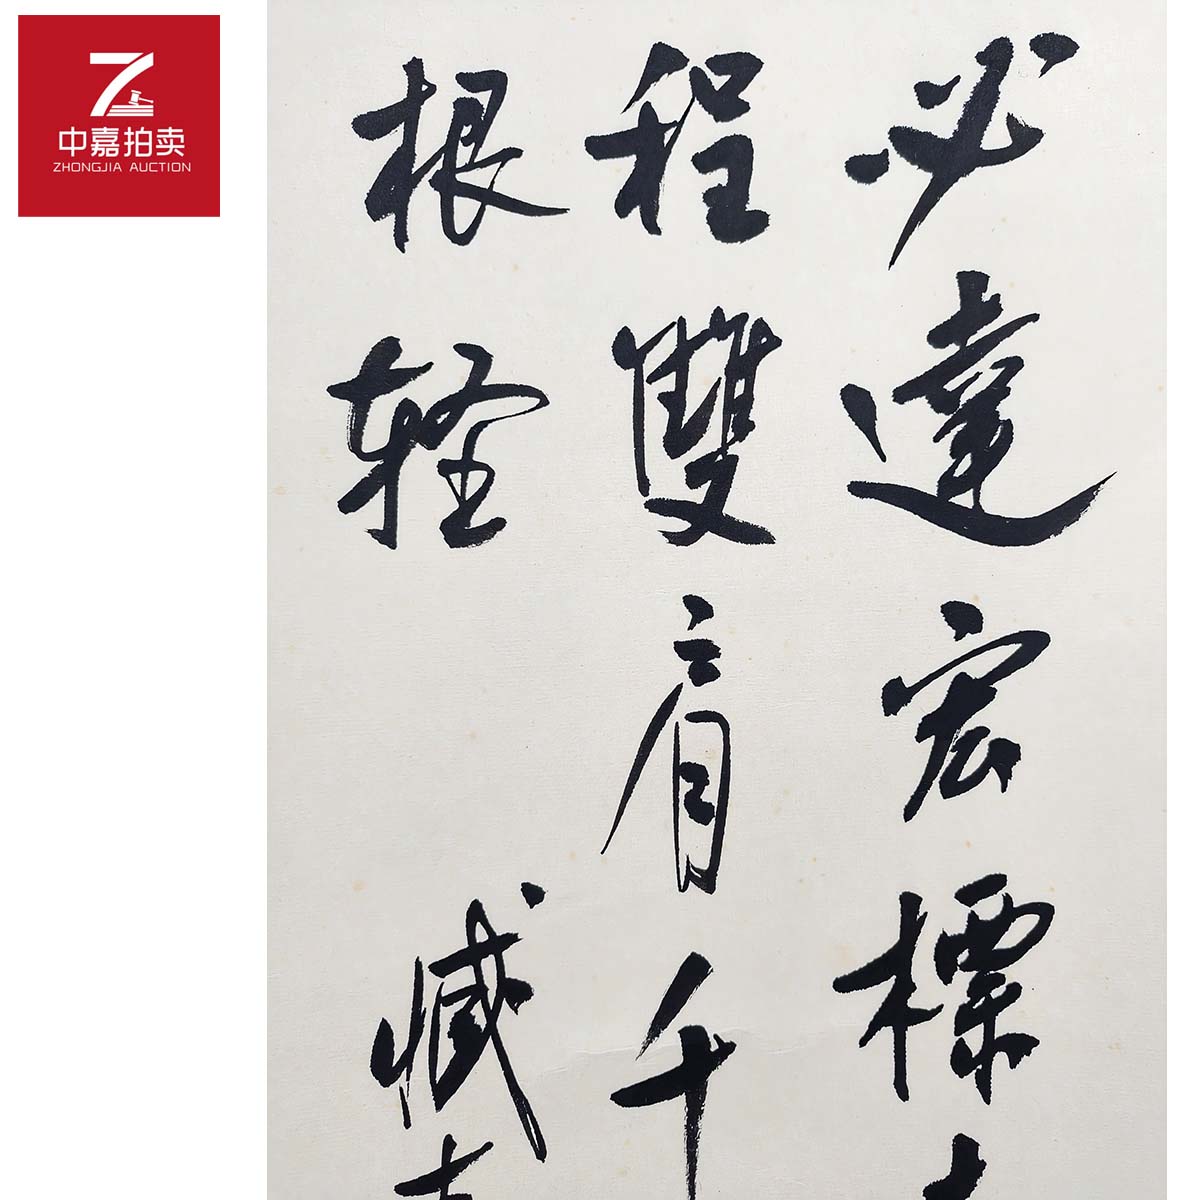 中嘉拍卖
ZHONGJIA AUCTION
必達宏標
程雙肩千
根轻